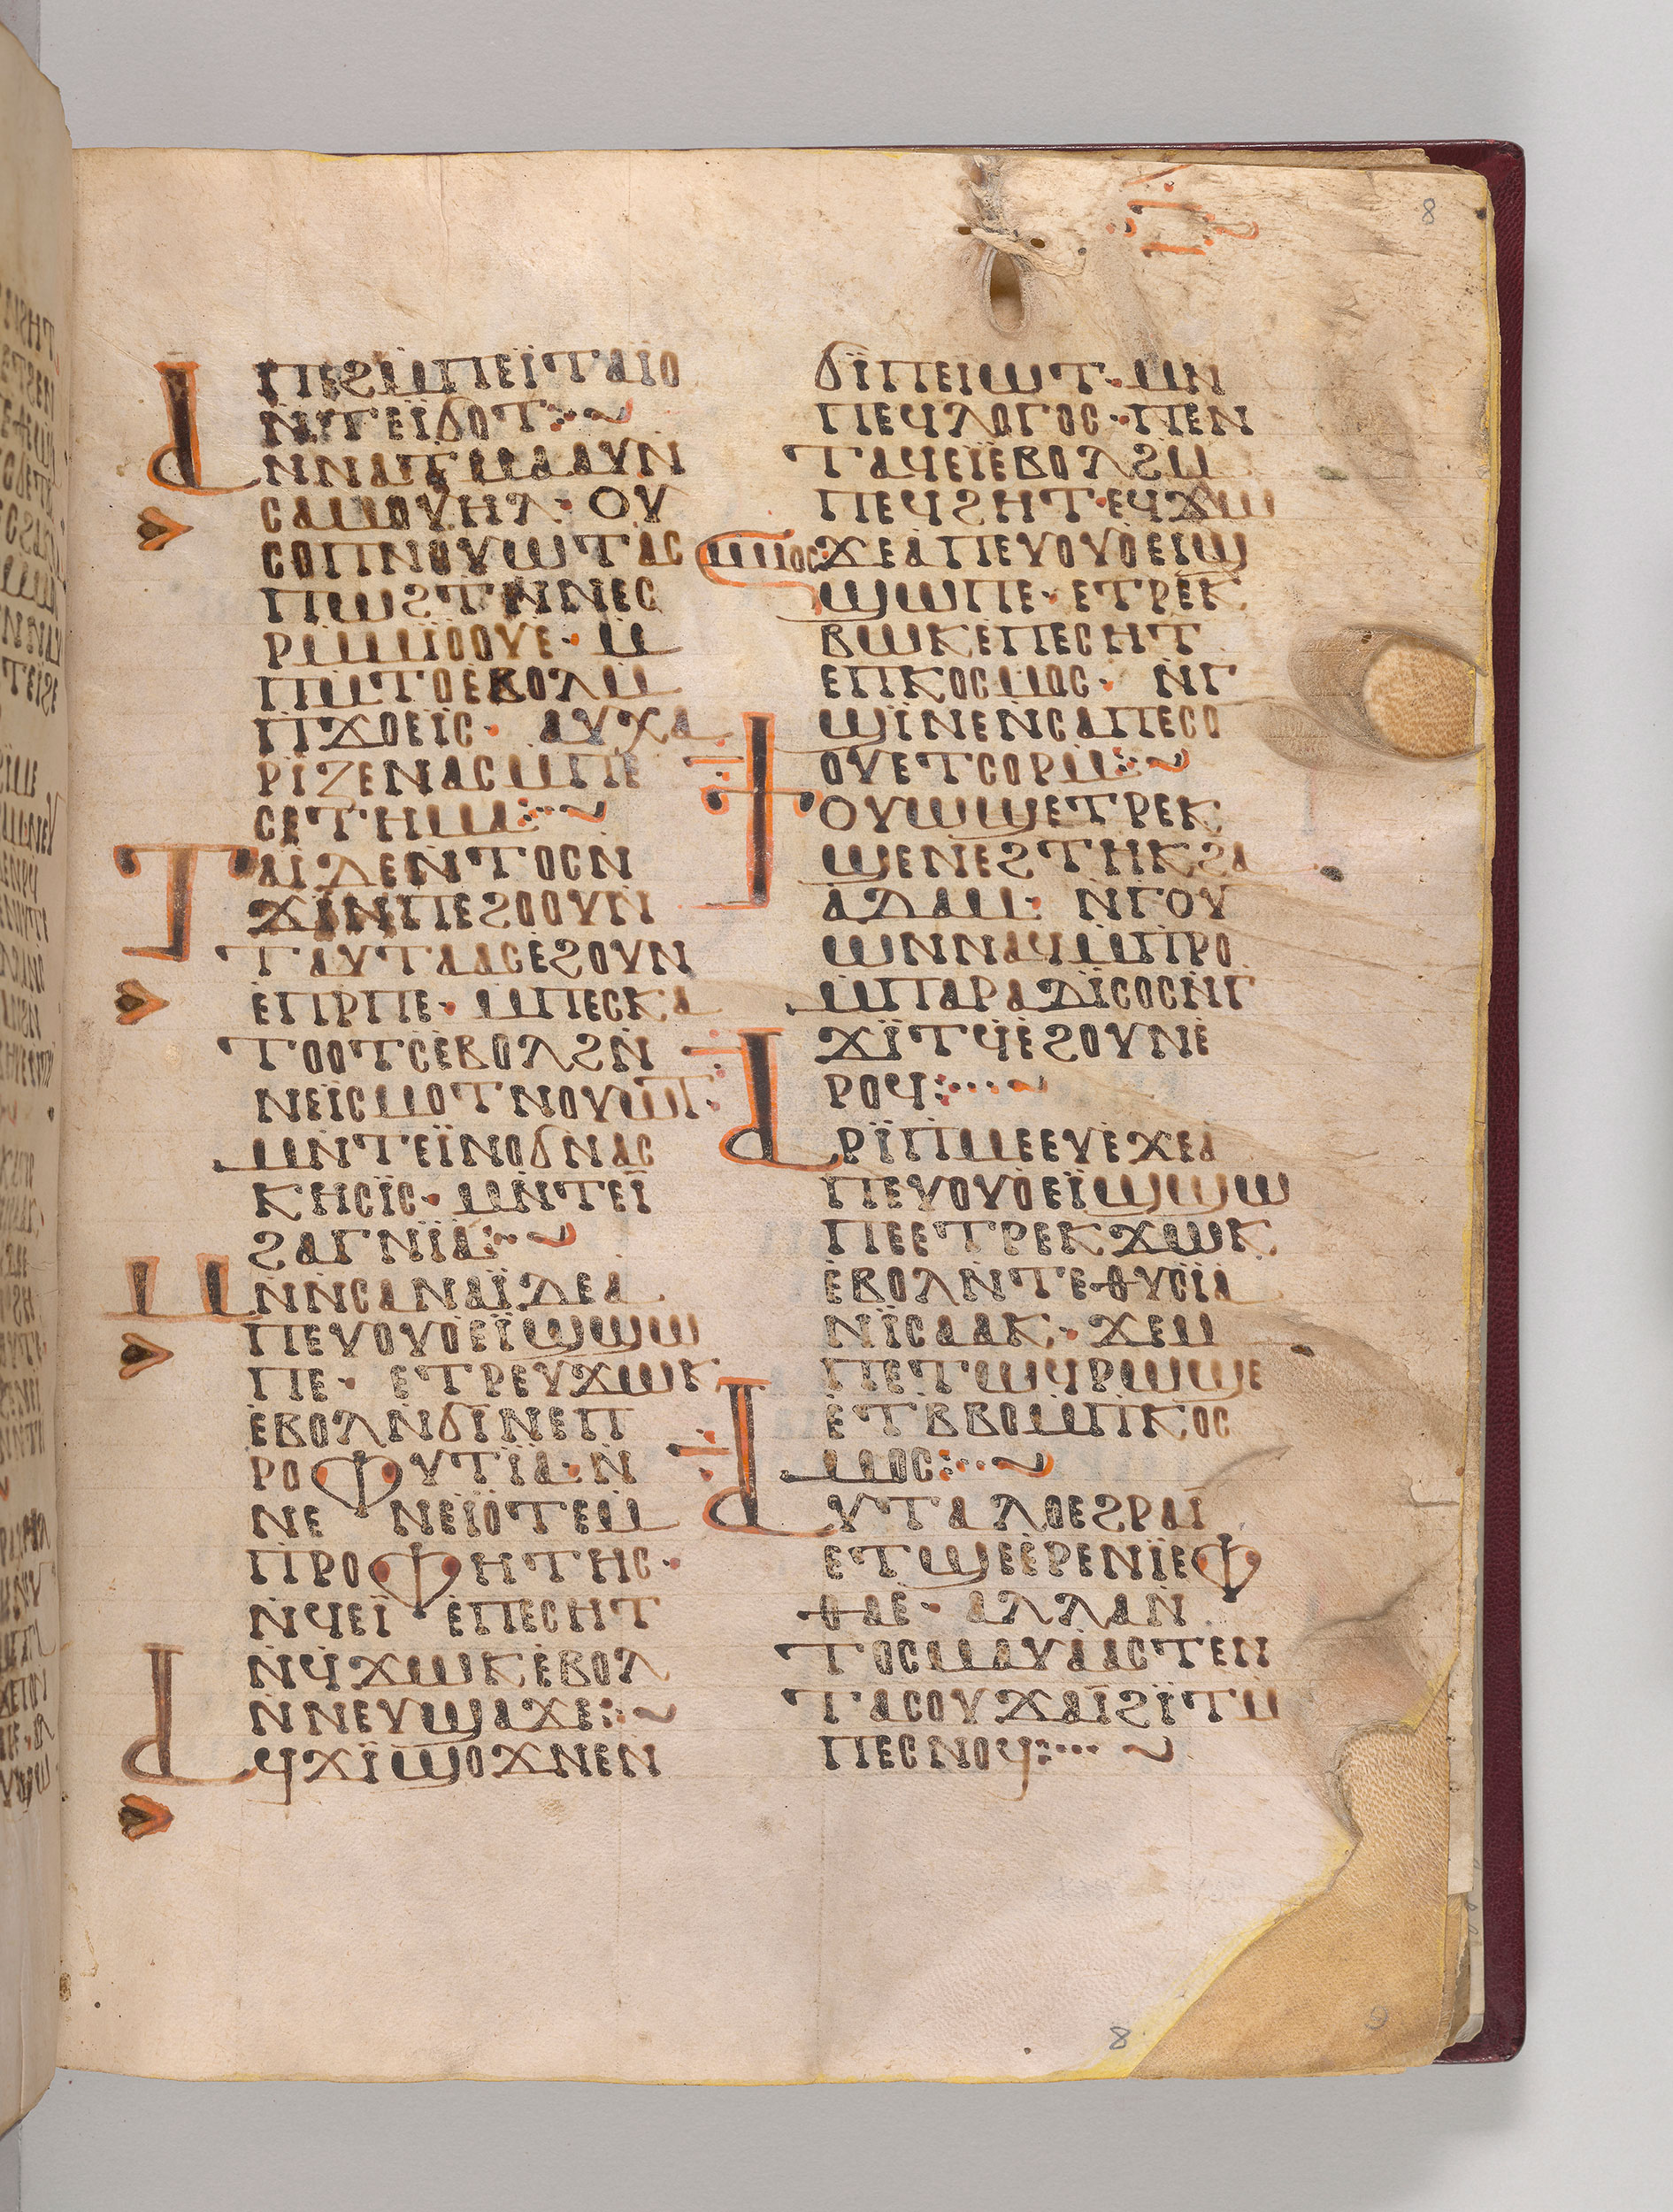 8
ⲁⲡⲉϩⲙ̄ⲡⲉⲓ̈ⲧⲁⲓ̈ⲟ
ⲛ̄ⲧⲉⲓ̈ϭⲟⲧ⁘~
ⲁⲛⲛⲁⲧⲙⲁⲁⲩⲛ
ⲥⲁⲙⲟⲩⲏⲗ· ⲟⲩ
ⲥⲟⲡⲛⲟⲩⲱⲧⲁⲥ
ⲡⲱϩⲧⲛ̄ⲛⲉⲥ
ⲣⲙ̄ⲙⲓ̈ⲟⲟⲩⲉ· ⲙ̄
ⲡⲙ̄ⲧⲟⲉ̀ⲃⲟⲗⲙ̄
ⲡϫⲟⲉⲓ̈ⲥ· ⲁⲩⲭⲁ
ⲣⲓ̈ⲍⲉⲛⲁⲥⲙ̄ⲡⲉ
ⲥⲉⲧⲏⲙⲁ⁘~
ⲧⲁⲓ̈ⲇⲉⲛ̄ⲧⲟⲥⲛ
ϫⲓⲛⲡⲉϩⲟⲟⲩⲛ̄
ⲧⲁⲩⲧⲁⲁⲥⲉ̀ϩⲟⲩⲛ
ⲉ̀ⲡⲣ̄ⲡⲉ· ⲙ̄ⲡⲉⲥⲕⲁ
ⲧⲟⲟⲧⲥ̄ⲉ̀ⲃⲟⲗϩⲛ̄
ⲛⲉⲓ̈ⲥⲙⲟⲧⲛⲟⲩⲱⲧ:
ⲙⲛ̄ⲧⲉⲓ̈ⲛⲟϭⲛⲁⲥ
ⲕⲏⲥⲓ̈ⲥ· ⲙⲛ̄ⲧⲉⲓ̈
ϩⲁⲅⲛⲓ̈ⲁ⁘~
ⲙⲛ̄ⲛ̄ⲥⲁⲛⲁⲓ̈ⲇⲉⲁ
ⲡⲉⲩⲟⲩⲟⲉⲓ̈ϣϣⲱ
ⲡⲉ· ⲉⲧⲣⲉⲩϫⲱⲕ
ⲉ̀ⲃⲟⲗⲛ̄ϭⲓ̈ⲛⲉⲡ
ⲣⲟⲫⲩⲧⲓ̈ⲁ·ⲛ̄
ⲛⲉ ⲛⲉⲓ̈ⲟⲧⲉⲙ̄
ⲡⲣⲟⲫⲏⲧⲏⲥ·
ⲛ̄ϥⲉⲓ̈ ⲉ̀ⲡⲉⲥⲏⲧ
ⲛ̄ϥ̄ϫⲱⲕⲉ̀ⲃⲟⲗ
ⲛ̄ⲛⲉⲩϣⲁϫⲉ⁘~
ⲁϥϫⲓ̈ϣⲟϫⲛⲉⲛ
ϭⲓ̈ⲡⲉⲓⲱⲧ· ⲙⲛ
ⲡⲉϥⲗⲟⲅⲟⲥ· ⲡⲉⲛ
ⲧⲁϥⲉⲓ̈ⲉ̀ⲃⲟⲗϩⲙ̄
ⲡⲉϥϩⲏⲧ·ⲉϥϫⲱ
ⲙⲙⲟⲥ:ϫⲉⲁ̀ⲡⲉⲩⲟⲩⲟ̀ⲉⲓϣ
ϣⲱⲡⲉ· ⲉⲧⲣⲉⲕ
ⲃⲱⲕⲉ̀ⲡⲉⲥⲏⲧ
ⲉⲡⲕⲟⲥⲙⲟⲥ· ⲛ̄ⲅ
ϣⲓ̈ⲛⲉⲛ̄ⲥⲁⲡⲉⲥⲟ
ⲟⲩⲉⲧⲥⲟⲣⲙ̄⁘~
ϯⲟⲩⲱϣⲉⲧⲣⲉⲕ
ϣⲉⲛⲉϩⲧⲏⲕϩⲁ
ⲁ̀ⲇⲁⲙ· ⲛ̄ⲅⲟⲩ
ⲱⲛⲛⲁϥⲙ̄ⲡⲣⲟ
ⲙ̄ⲡⲁⲣⲁⲇⲓ̈ⲥⲟⲥⲛ̄ⲅ
ϫⲓ̈ⲧϥ̄ⲉ̀ϩⲟⲩⲛⲉ̀
ⲣⲟϥ⁘~
ⲁⲣⲓ̈ⲡⲙⲉⲉⲩⲉ̀ϫⲉⲁ̀
ⲡⲉⲩⲟⲩⲟ̀ⲉⲓ̈ϣϣⲱ
ⲡⲉⲉⲧⲣⲉⲕϫⲱⲕ
ⲉ̀ⲃⲟⲗⲛ̄ⲧⲉⲑⲩⲥⲓ̈ⲁ
ⲛⲓ̈ⲥⲁⲁⲕ· ϫⲉⲙ
ⲡⲉⲧⲱϥⲣⲱϣⲉ
ⲉ̀ⲧⲃⲃⲟⲙ̄ⲡⲕⲟⲥ
ⲙⲟⲥ⁘~
ⲁⲩⲧⲁⲗⲟⲉϩⲣⲁⲓ̈
ⲉⲧϣⲉⲉ̀ⲣⲉⲛⲓ̈ⲉⲫ
ⲑⲁⲉ̀· ⲁⲗⲗⲁⲛ̄
ⲧⲟⲥⲙⲁⲩⲁ̀ⲁⲥⲧⲉⲛ
ⲧⲁⲥⲟⲩϫⲁⲓ̈ϩⲓ̈ⲧⲙ̄
ⲡⲉⲥⲛⲟϥ⁘~
8